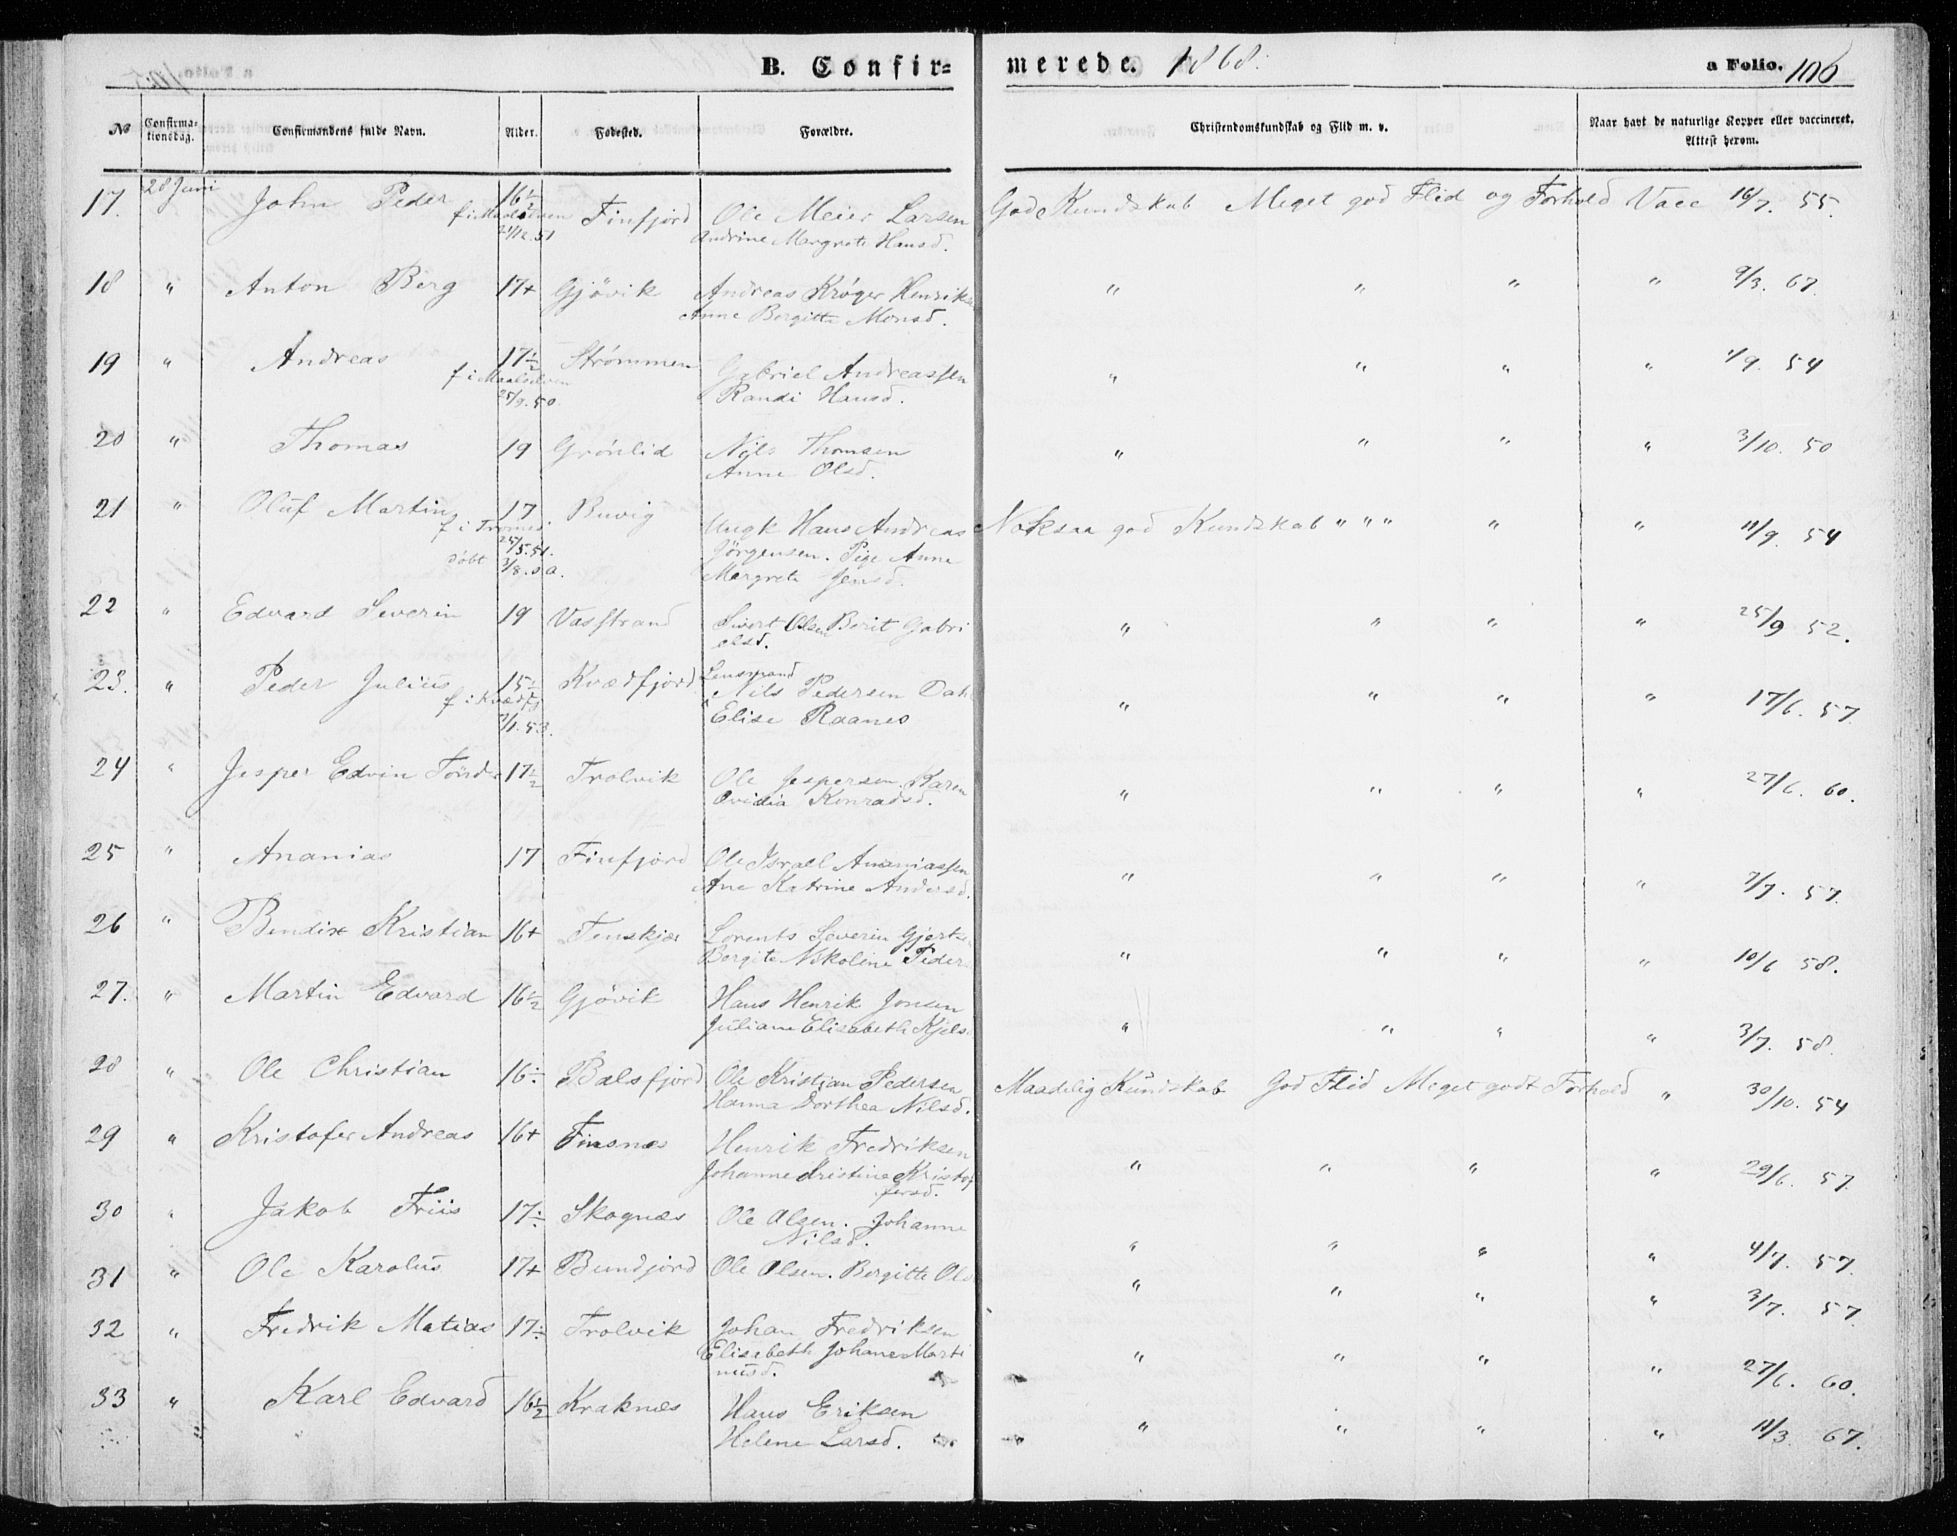 B. Confir=
merede. 1868.
a Folio. 106
No
Confirma-
tionsdag.
Confirmandens fulde Navn.
Alder.
Fødested.
Forældre.
Christendomskundskab og Flid m. v.
Naar havt de naturlige Kopper eller vaccineret.
Attest herom.
17. 28 Juni John Peder 16½ Finfjord Ole Meier Larsen God Kundskab Meget god Flid og Forhold Vacc 16/7. 55.
f i Maalselven
21/12.51 Andrine Margrete Hansd.
18 " Anton Berg 17+ Gjövik Andreas Krøger Henriks " " " " 9/3. 67.
Anne Bergitte Monsd.
19 " Andreas 17½ Strømmen Gabriel Andreassen " " " " 1/9. 54
f i Maalselven
25/9.50. Randi Hansd.
20 " Thomas 19 Grönlid Nils Thomsen " " " " 3/10. 50
Anne Olsd.
21 " Oluf Martin 17 Buvig Ungk Hans Andreas Noksaa god Kundskab " " " " " 11/9. 54
f i Tromsö
25/5.51. Jörgensen. Pige Anne
döbt 3/8. s. a. Margrete Jensd.
22 " Edvard Severin 19 Vasstrand Sivert Olsen Berit Gabri " " " " 25/9 52.
elsd.
23. " Peder Julius 15½ Kvædfjord Lensmand
f i Kvædfj Nils Pedersen Dah " " " " 17/6. 57.
2/1.53. Elise Raanes
24 " Jesper Edvin Tönder 17½ Trolvik Ole Jespersen. Karen " " " " 27/6. 60.
Ovidia Konradsd.
25 " Ananias 17 Finfjord Ole Israel Ananiassen " " " " 7/7. 57.
Ane Katrine Andersd.
26 " Bendix Kristian 16+ Tenskjær Lorents Severin Gjerts " " " " 10/6 58.
Bergite Nikoline Peders
27. " Martin Edvard 16½ Gjövik Hans Henrik Jonsen " " " " 3/7. 58.
Juliane Elisabeth Kjels
28 " Ole Christian 16÷ Balsfjord Ole Kristian Pedersen Maadelig Kundskab God Flid Meget godt Forhold " 30/10. 54
Hanna Dorthea Nilsd.
29 " Kristofer Andreas 16+ Finsnæs Henrik Fredriksen " " " " 29/6. 57.
Johanne Kristine Kristof
fersd.
30 " Jakob Friis 17÷ Skognæs Ole Olsen. Johanne " " " " 4/7. 57.
Nilsd.
31 " Ole Karolus 17+ Bundjord Ole Olsen. Bergitte Ols " " " " 3/7. 57.
32 " Fredrik Matias 17÷ Trolvik Johan Fredriksen " " " " 27/6. 60.
Elisabeth Johane Marti
nusd.
33 " Karl Edvard 16½ Kraknæs Hans Eriksen " " " " 11/3 67.
Helene Larsd.